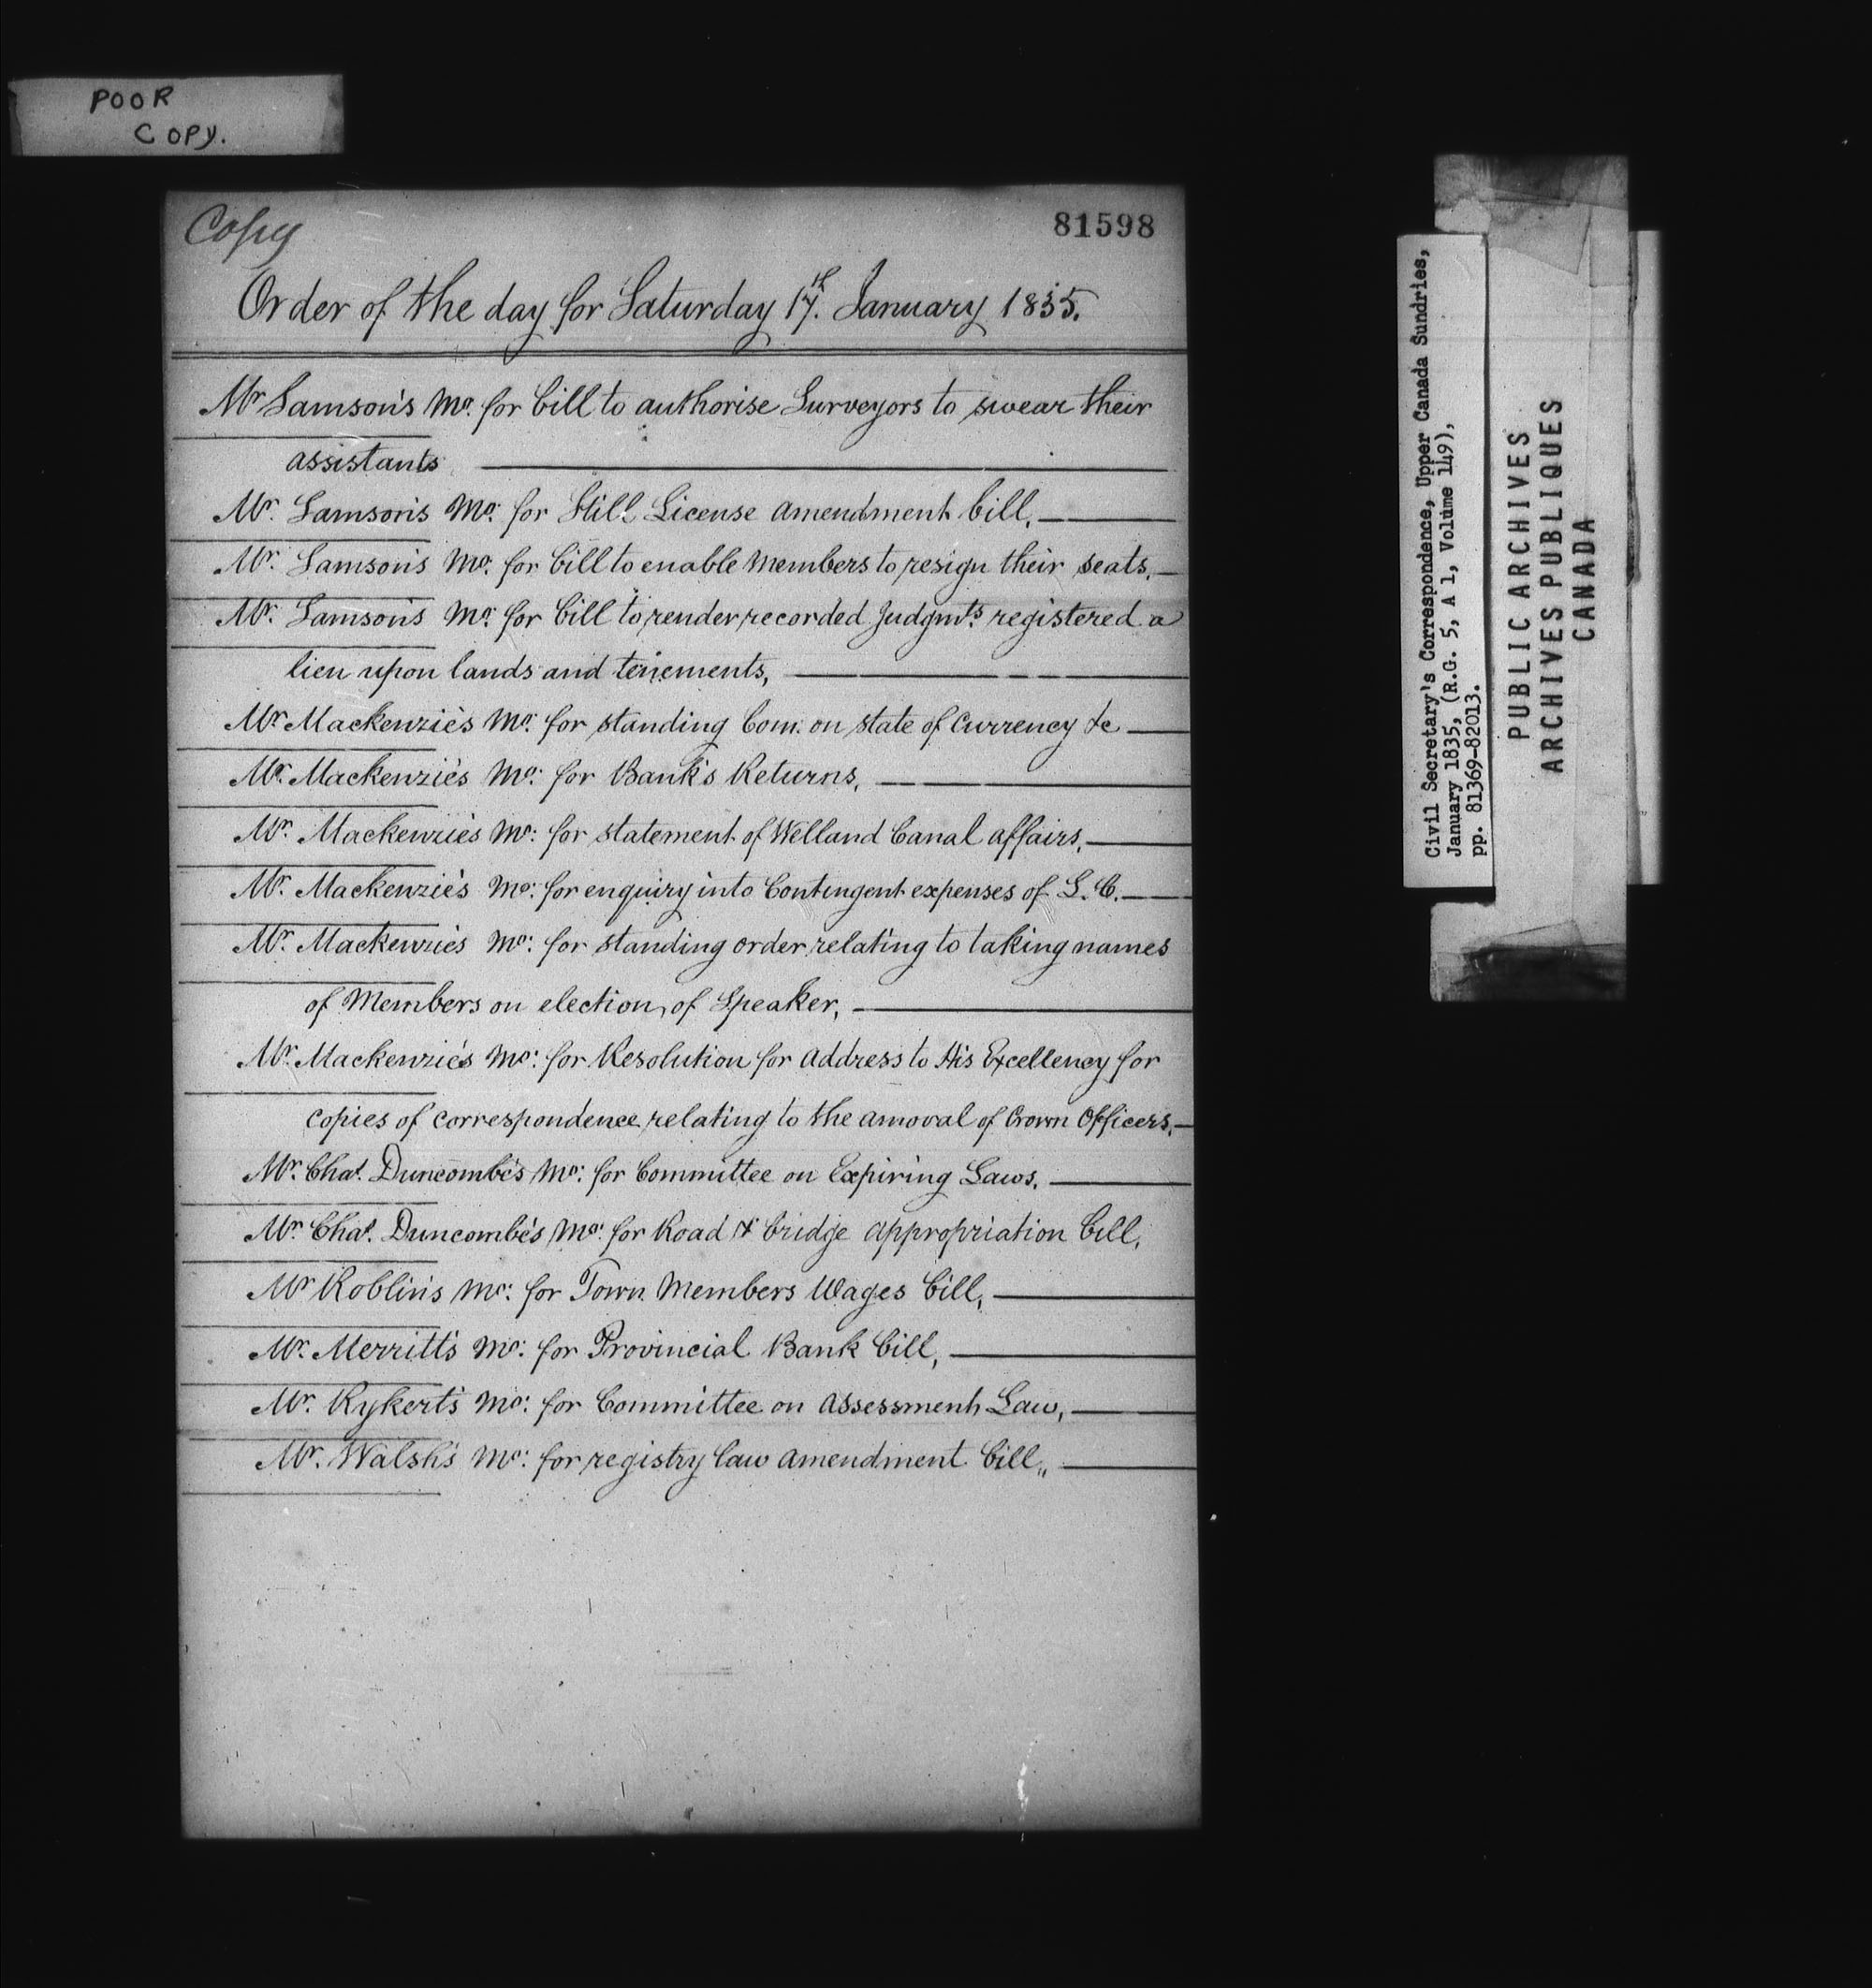 POOR
COPY.
Copy
81598
Order of the day for Saturday 17th. January 1835.
Mr Samson's Mo. for bill to authorise Surveyors to swear their
assistants
Mr. Samson's Mo. for Still License amendment bill,
Mr. Samson's Mo. for bill to enable Members to resign their seats,
Mr. Samson's Mo. for bill to render recorded Judgmts. registered a
lien upon lands and tenements,
Mr Mackenzie's Mo. for standing Com. on state of Currency &c
Mr. Mackenzie's Mo. for Bank's Returns,
Mr. Mackenzie's Mo. for statement of Welland Canal affairs,
Mr. Mackenzie's Mo. for enquiry into Contingent expenses of L. C.
Mr. Mackenzie's Mo. for standing order relating to taking names
of Members on election of Speaker,
Mr. Mackenzie's Mo. for Resolution for address to His Excellency for
copies of correspondence relating to the amoval of Crown Officers,
Mr. Chas. Duncombe's Mo. for Committee on Expiring Laws,
Mr. Chas. Duncombe's Mo. for Road & bridge appropriation bill,
Mr Roblin's Mo. for Town Members Wages bill,
Mr. Merritt's Mo. for Provincial Bank bill,
Mr. Rykert's Mo. for Committee on assessment Law,
Mr. Walsh's Mo. for registry law amendment bill,,
Civil Secretary's Correspondence, Upper Canada Sundries,
January 1835, (R.G. 5, A 1, Volume 149),
pp. 81369-82013.
PUBLIC ARCHIVES
ARCHIVES PUBLIQUES
CANADA